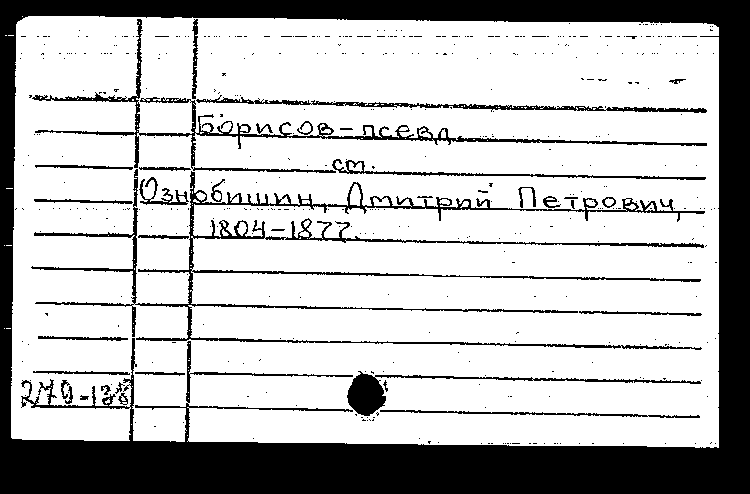 Борисов-псевд.
см.
Ознобишин, Дмитрий Петрович,
1804-1877.
270-138